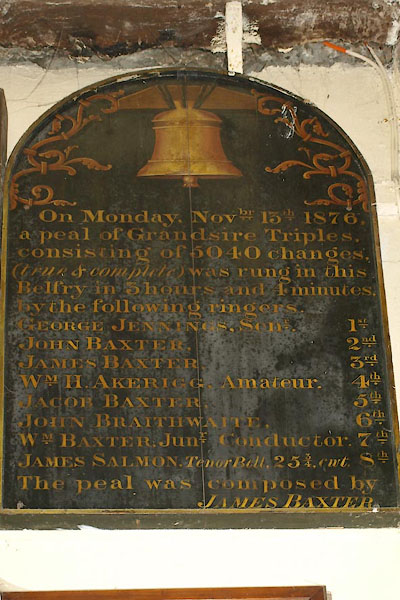 On Monday, Novbr 13th 1876,
a peal of Grandsire Triples,
consisting of 5040 changes,
(true & complete) was rung in this
Belfry in 3 hours and 4 minutes,
by the following ringers.
George Jennings, Senr. 1st
John Baxter, 2nd
James Baxter 3rd
Wm H. Akerigg, Amateur. 4th
Jacob Baxter, 5th
John Braithwaite, 6th
Wm Baxter, Junr Conductor. 7th
James Salmon, Tenor Bell, 25¾, cwt. 8th
The peal was composed by
James Baxter